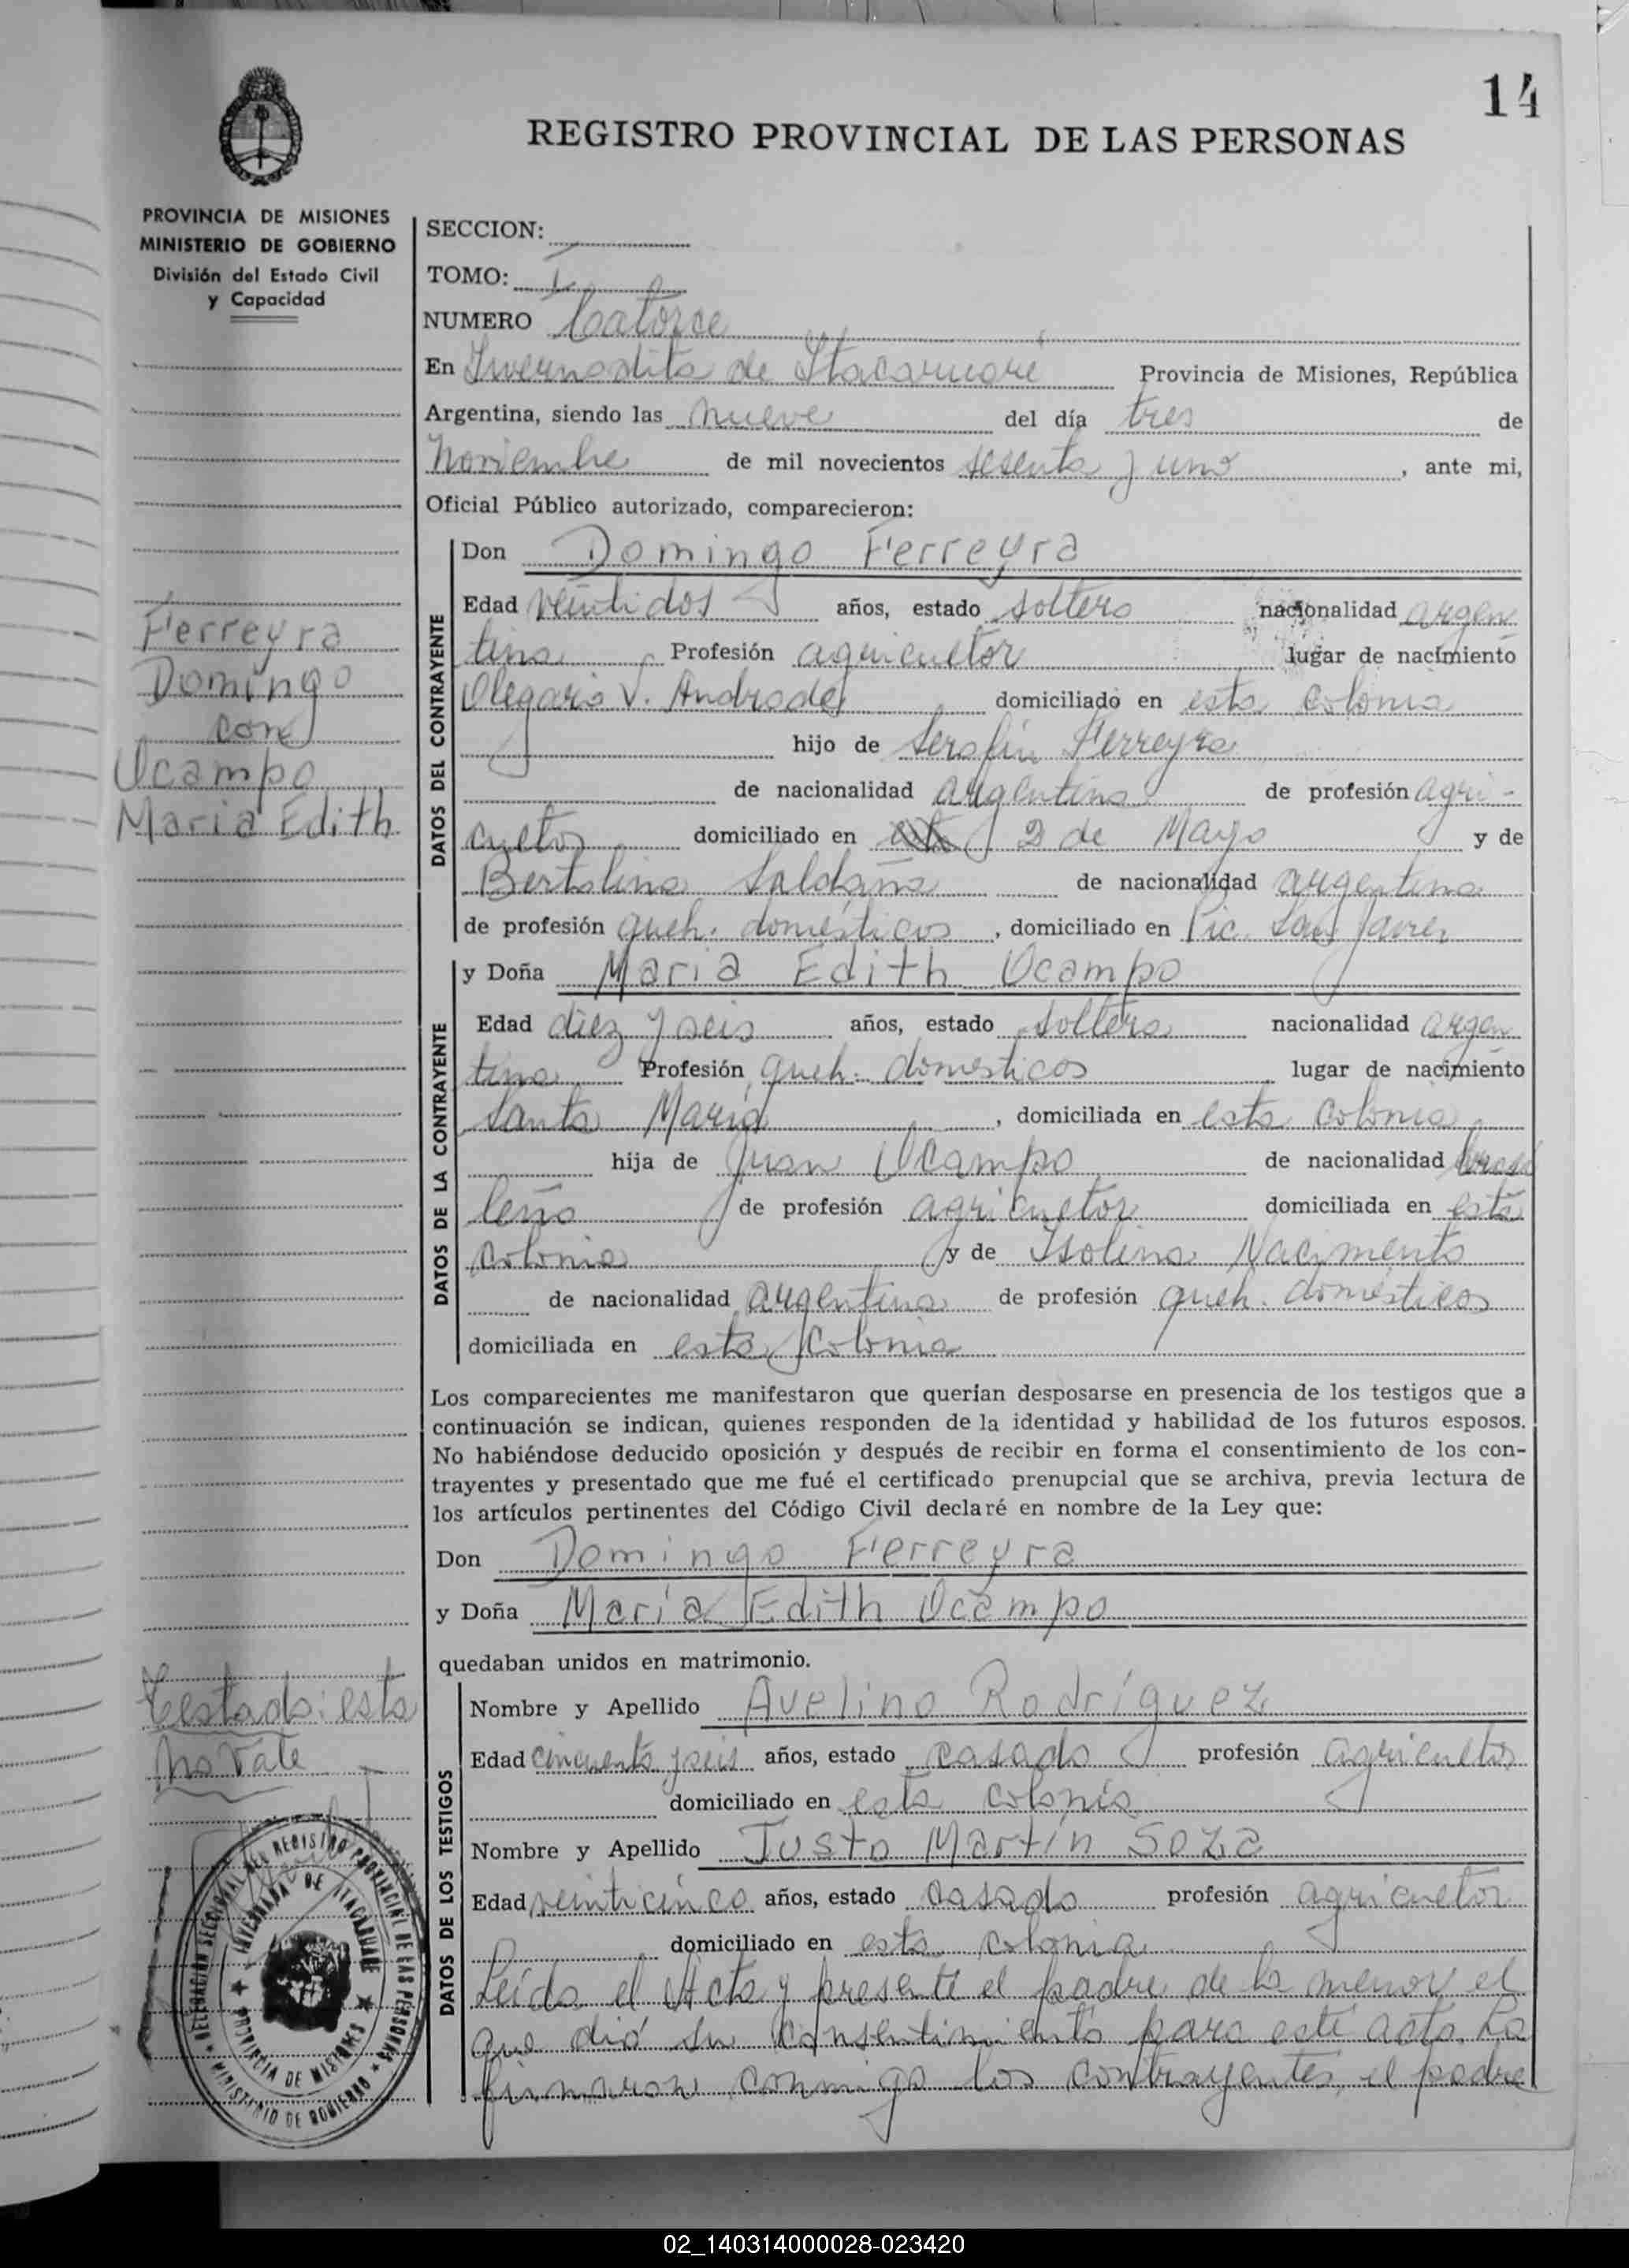 14
REGISTRO PROVINCIAL DE LAS PERSONAS
PROVINCIA DE MISIONES
MINISTERIO DE GOBIERNO
División del Estado Civil
y Capacidad
SECCION:
TOMO: I
NUMERO Catorce
En Invernadita de Itacaruaré Provincia de Misiones, República
Argentina, siendo las nueve del día tres de
Noviembre de mil novecientos sesenta y uno, ante mi,
Oficial Público autorizado, comparecieron:
DATOS DEL CONTRAYENTE
Don Domingo Ferreyra
Edad veinti dos años, estado soltero nacionalidad argen
tina Profesión agricultor lugar de nacimiento
Olegario V. Andrade domiciliado en esta colonia
hijo de Serafin Ferreyra
de nacionalidad argentina de profesión agri-
cultor domiciliado en esta 2 de Mayo y de
Bertolina Saldaña de nacionalidad argentina
de profesión queh. domésticos, domiciliado en Pic. San Javier
Ferreyra
Domingo
con
Ocampo
Maria Edith
DATOS DE LA CONTRAYENTE
y Doña Maria Edith Ocampo
Edad diez y seis años, estado soltera nacionalidad argen
tina Profesión queh. domesticos lugar de nacimiento
Santa María, domiciliada en esta colonia
hija de Juan Ocampo de nacionalidad brasi
leño de profesión agricultor domiciliada en esta
colonia y de Isolina Nacimento
de nacionalidad argentina de profesión queh. domésticos
domiciliada en esta colonia
Los comparecientes me manifestaron que querían desposarse en presencia de los testigos que a
continuación se indican, quienes responden de la identidad y habilidad de los futuros esposos.
No habiéndose deducido oposición y después de recibir en forma el consentimiento de los con-
trayentes y presentado que me fué el certificado prenupcial que se archiva, previa lectura de
los artículos pertinentes del Código Civil declaré en nombre de la Ley que:
Don Domingo Ferreyra
y Doña María Edith Ocampo
quedaban unidos en matrimonio.
Testado: esta
no vale
DATOS DE LOS TESTIGOS
Nombre y Apellido Avelino Rodríguez
Edad cincuenta y seis años, estado casado profesión agricultor
domiciliado en esta colonia
Nombre y Apellido Justo Martín Soza
Edad veinticinco años, estado casado profesión agricultor
domiciliado en esta colonia
Leída el Acta y presente el padre de la menor el
que dió su consentimiento para este acto. La
firmaron conmigo los contrayentes, el padre
DELEGACION SECCIONAL DEL REGISTRO PROVINCIAL DE LAS PERSONAS
MINISTERIO DE GOBIERNO
INVERNADA DE ITACARUARE
PROVINCIA DE MISIONES
02_140314000028-023420